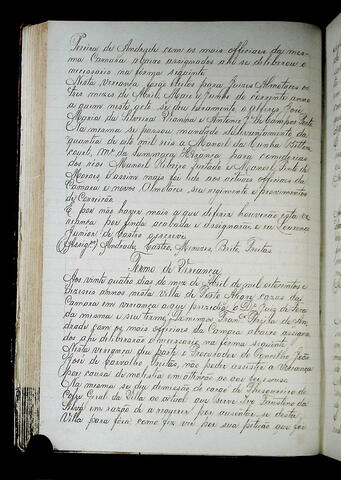 Pereira de Andrade com os mais officiaes da mes-
ma Camara abaixo assignados ahi se deliberou o
necessario na forma seguinte
Nesta vereança forão eleitos para Juizes Almotaces os
tres mezes de Abril, Maio e Junho do corrente anno
a quem nesta acto se deu juramento o Alferes José
Maria da Silveira Vianna e Antonio J.e de Campos Forte
Na mesma se passou mandado de levantamento da
quantia de oito mil reis a Manoel da Cunha Bitten
court,
dos rios Manoel Ribeiro Furtado e Manoel Pinto de
Moraes e assim mais foi lido aos actuaes officiaes da
Camara e novos Almotaces seu regimento e provimentos
de Correição
E por não haver mais a que deferir houverão esta ve-
reança por finda acabada e assignarão e eu Lourenço
Junior de Castro escrevi
(Assig.os) Andrade, Castro, Menezes, Brito, Freitas
Termo de Vereança
Aos vinte quatro dias do mez de Abril de mil oitocentos e
dezeseis annos nesta villa de Porto Alegre cazas da
Camara em vereança a que prezidio o D.or Juiz de Fora
da mesma e seu termo Domingos Fran.co Pereira de An
drade com os mais officiaes da Camara abaixo assigna
dos ahi deliberarão o necessario na forma seguinte
Nesta vereança deu parte o Procurador do Concelho João
José de Carvalho Freitas, não poder assistir a Vereança
por cauza de molestia em attenção ao que
Na mesma se deu demissão do cargo de Thesoureiro do
Cofre Geral da Villa ao actual que serve José Faustino da
Silva em razão de a requerer por auzentar se desta
Villa para fora como fez ver por sua petição que foi